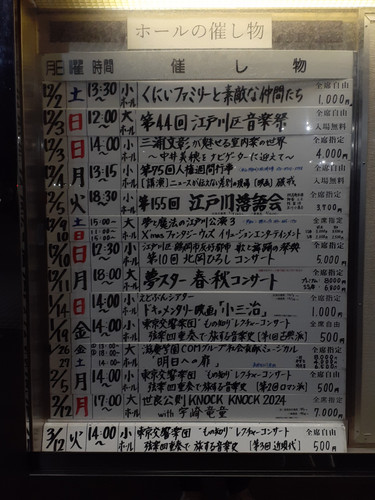 ホールの催し物
月日 曜 時間 催し物
12/2 土 13:30~ 小ホール くにいファミリーと素敵な仲間たち 全席自由 1,000円
12/3 日 12:00~ 大ホール 第44回江戸川区音楽祭 全席自由 入場無料
12/3 日 14:00~ 小ホール 三浦文彰が魅せる室内楽の世界 全席指定
~中井美穂をナビゲーターに迎えて~ 4,000円
12/4 月 13:15~ 小ホール 第75回人権週間行事 全席自由
入場無料
12/5 火 18:30~ 小ホール 第155回江戸川落語会 全席指定
12/9 土 大ホール 夢と魔法の江戸川公演3 全席指定
12/10 日 Xmasファンタジーウズ イリュージョンエンタテイメント
12/10 日 17:30~ 小ホール 全席指定
第10回北岡ひろしコンサート 5,000円
12/11 月 18:00~ 大ホール 夢スター春・秋コンサート 全席指定
14:00~ 小ホール えどがわシアター 全席指定
ドキュメンタリー映画「小三治」 1,000円
金 14:00~ 小ホール 東京交響楽団 "もの知り"レクチャーコンサート 全席自由
弦楽四重奏で旅する音楽史 [第1回古典派] 500円
大ホール 全席指定
明日への扉
2/5 月 14:00~ 小ホール 東京交響楽団 "もの知り"レクチャーコンサート 全席自由
弦楽四重奏で旅する音楽史 [第2回ロマン派] 500円
2/12 月 17:00~ 大ホール 世良公則 KNOCK KNOCK 2024 全席指定
with 宇崎竜童 7,000円
3/12 火 14:00~ 小ホール 東京交響楽団 "もの知り"レクチャーコンサート 全席自由
弦楽四重奏で旅する音楽史 [第3回近現代] 500円